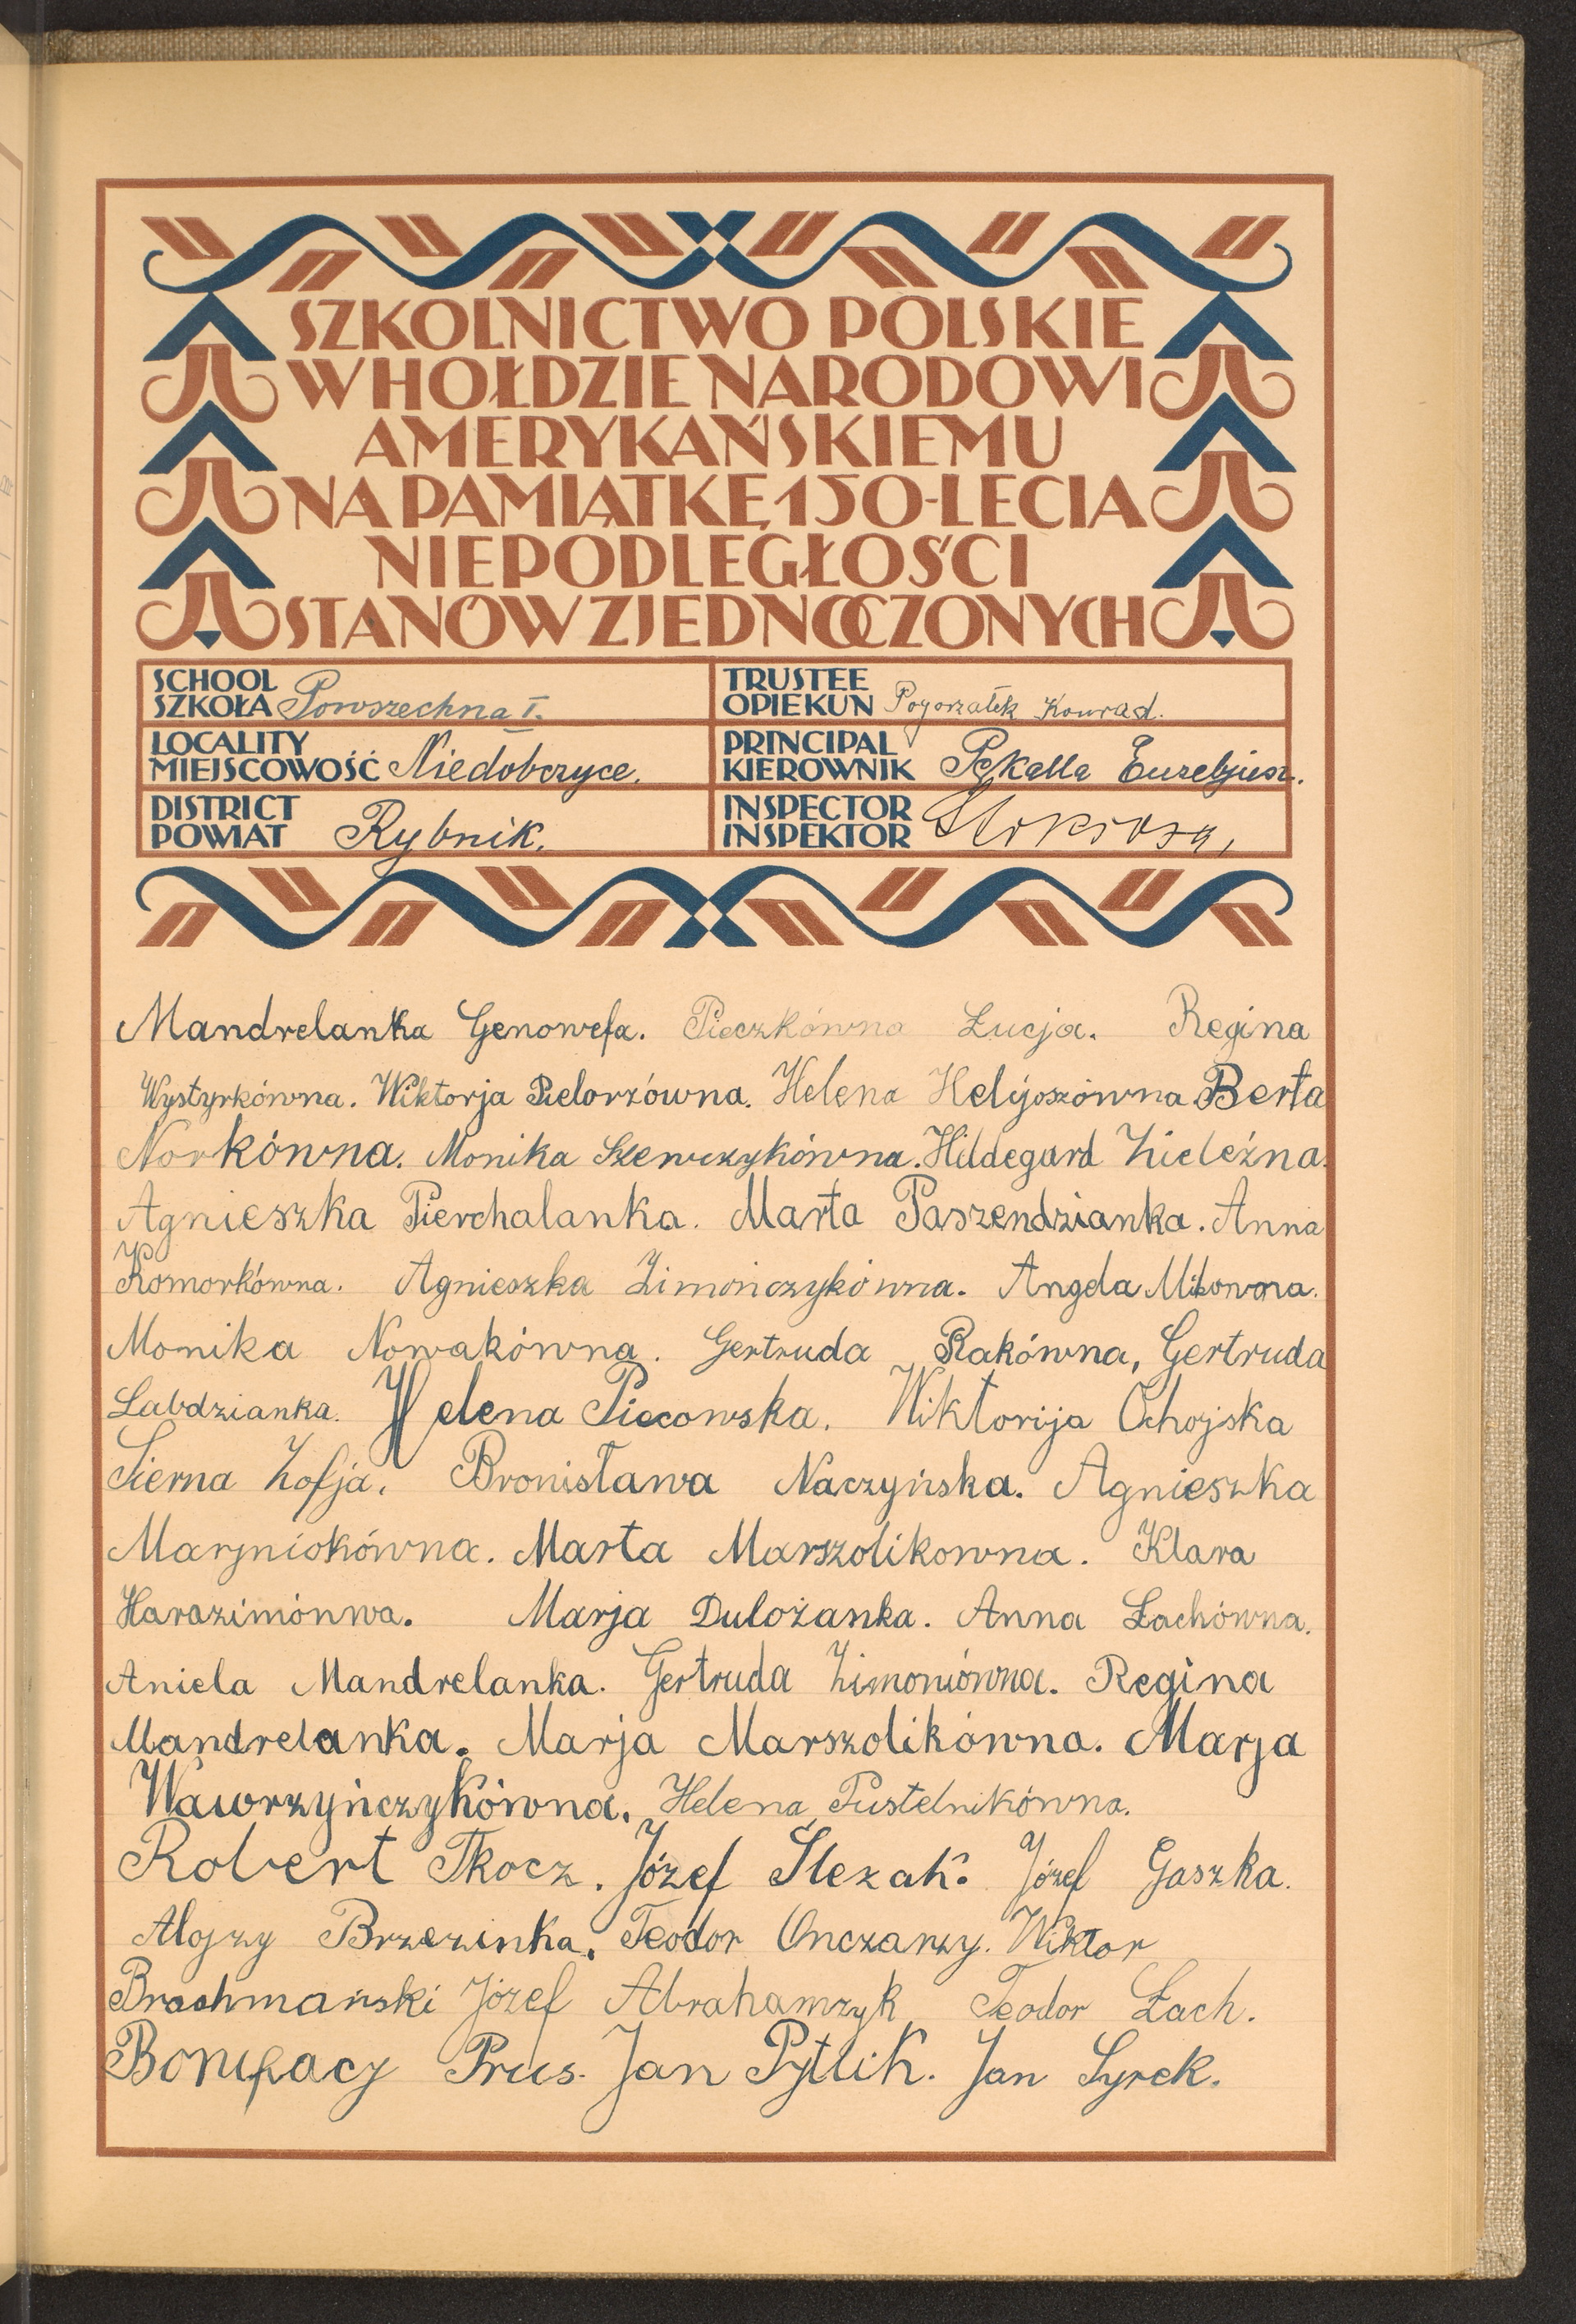 SZKOLNICTWO POLSKIE
W HOŁDZIE NARODOWI
AMERYKAŃSKIEMU
NA PAMIĄTKĘ 150-LECIA
NIEPODLEGŁOŚCI
STANÓW ZJEDNOCZONYCH
SCHOOL
SZKOŁA Powszechna I.
TRUSTEE
OPIEKUN Pogorzałek Konrad.
LOCALITY
MIEJSCOWOŚĆ Niedobczyce.
PRINCIPAL
KIEROWNIK Pękalla Euzebjusz.
DISTRICT
POWIAT Rybnik.
INSPECTOR
INSPEKTOR
Mandrelanka Genowefa. Pieczkówna Łucja. Regina
Wystyrkówna. Wiktorja Pielorzówna. Helena Helijoszówna Berta
Norkówna. Monika Szewczykówna. Hildegard Zieleźna.
Agnieszka Pierchalanka. Marta Paszendzianka. Anna
Komorkówna. Agnieszka Zimończykówna. Angela Mikowna.
Monika Nowakówna. Gertruda Rakówna, Gertruda
Labdzianka. Helena Piecowska. Wiktorija Ochojska
Sierna Zofja. Bronisława Naczyńska. Agnieszka
Marjniokówna. Marta Marszolikowna. Klara
Harazimónwa. Marja Dulożanka. Anna Łachówna.
Aniela Mandrelanka. Gertruda Zimoniówna. Regina
Mandrelanka. Marja Marszolikówna. Marja
Wawrzyńczykówna. Helena Pustelnikówna.
Robert Tkocz. Józef Ślezak. Józef Gaszka.
Alojzy Brzezinka. Teodor Onczarzy. Wiktor
Brachmański Józef Abrahamzyk Teodor Łach.
Bonifacy Prus. Jan Pytlik. Jan Syrek.